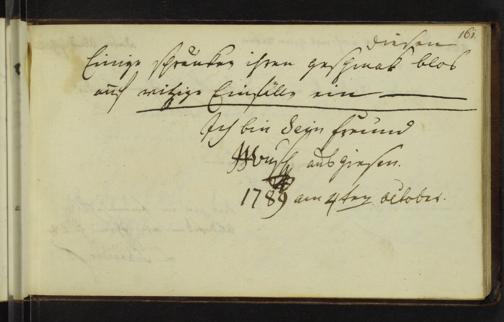 161.
diesen
Einige schräncken ihren geschmak blos
auf witzige Einfälle ein
Ich bin dein freund
aus giesen.
1789 am 4ten october.